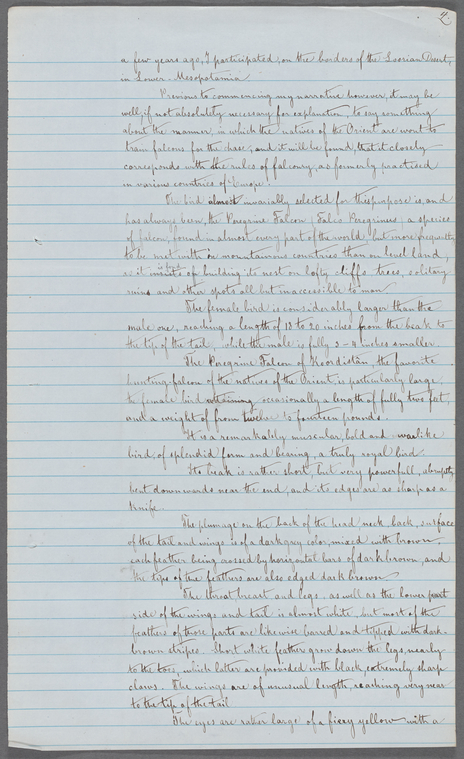 2
a few years ago, I participated, on the borders of the Desert,
in Lower-Mesopotamia
Previous to commencing my narrative however, it may be
well, if not absolutely necessary for explanation, to say something
about the manner, in which the natives of the Orient are wont to
train falcons for the chase, and it will be found, that it closely
corresponds with the rules of falconry, as formerly practised
in various countries of Europe.
The bird almost invariably selected for this purpose is, and
has always been, the Peregrine Falcon; Falco Peregrinus, a species
of falcon, found in almost every part of the world, but more frequently
to be met with in mountainous countries than on level land,
as it of building its nest on lofty cliffs trees, solitary
ruins and other spots all but inaccessible to man
The female bird is considerably larger than the
male one, reaching a length of 18 to 20 inches from the beak to
the tip of the tail, while the male is fully 3-4 inches smaller.
The Peregrine Falcon of Koordistan, the favorite
hunting-falcon of the natives of the Orient, is particularly large
the female bird attaining occasionally a length of fully two feet,
and a weight of from twelve to fourteen pounds.
It is a remarkably muscular, bold and warlike
bird, of splendid form and bearing, a truly royal bird.
Its beak is rather short, but very powerfull, abruptly
bent downwards near the end, and its edges are as sharp as a
knife.
The plumage on the back of the head, neck back, surface
of the tail and wings is of a dark grey color, mixed with brown
each feather being crossed by horizontal bars of dark brown, and
the tips of the feathers are also edged dark brown
The throat breast and legs, as well as the lower part
side of the wings and tail is almost white, but most of the
feathers of those parts are likewise barred and tipped with dark
brown stripes. Short white feather grow down the legs, nearly
to the toes, which latter are provided with black, extremely sharp
claws. The wings are of unusual length, reaching very near
to the tip of the tail
The eyes are rather large of a fiery yellow with a